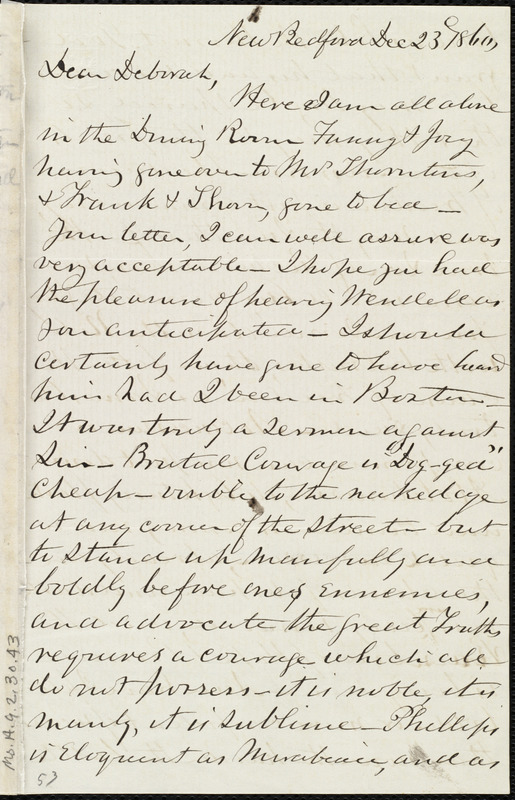 New Bedford Dec 23d 1860,
Dear Deborah,
Here I am all alone
in the Dining Room Fanny & Joey
having gone over to Mrs Thorntons,
& Frank & Thorn, gone to bed —
Your letter, I can well assure was
very acceptable — I hope you had
the pleasure of hearing Wendell as
you anticipated — I should
certainly have gone to have heard
him had I been in Boston —
It was truly a sermon against
Sin — Brutal Courage is "Dog-ged"
Cheap — visible to the naked eye
at any corner of the street — but
to stand up manfully and
boldly before ones Ennemies,
and advocate the great Truths
requires a courage which all
do not possess — it is noble, it is
manly, it is sublime — Phillips
is Eloquent as Mirabeau, and as
Ms. A. 9. 2. 30. 43
53